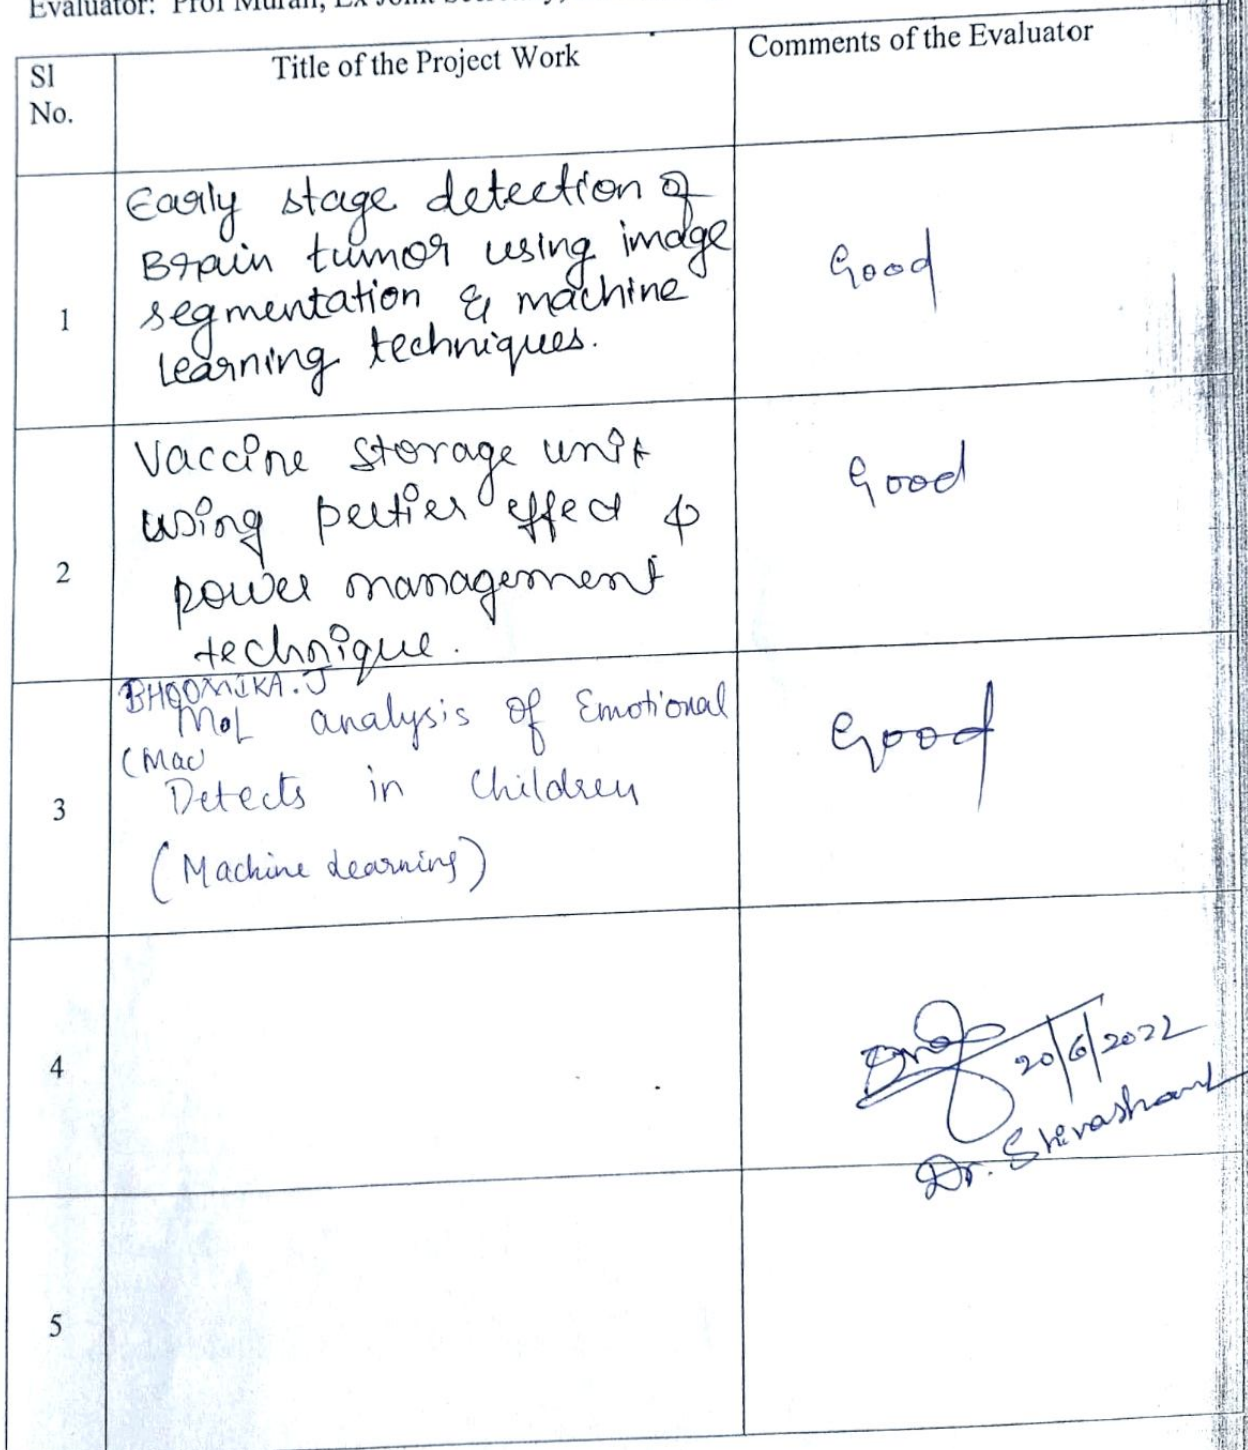 Evaluator: Prof Murali, Ex Joint
Sl
No.
Title of the Project Work
Comments of the Evaluator
1
Early stage detection of
Brain tumor using image
segmentation & machine
learning techniques.
Good
2
Vaccine storage unit
using peltier effect &
power management
technique.
Good
3
BHOOMIKA.J
MOL analysis of Emotional
(Mac
Detects in Children
(Machine Learning)
Good
4
20/6/2022
Dr. Shivashank
5